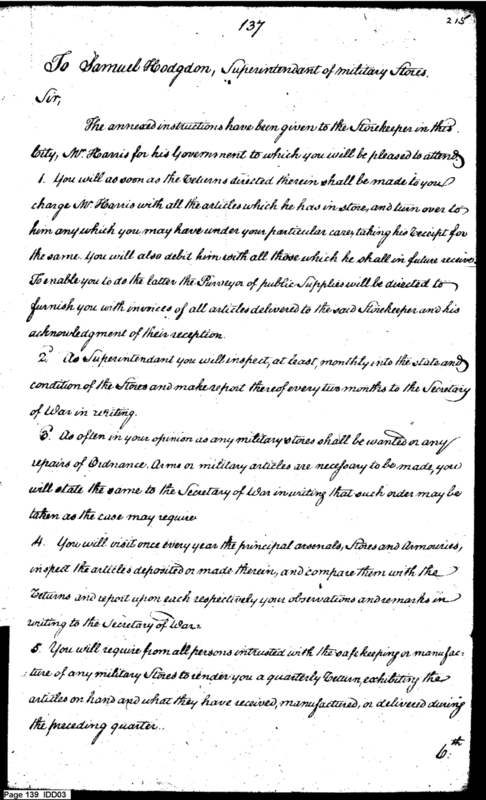 137
215
To Samuel Hodgdon, Superintendant of military Stores.
Sir,
The annexed instructions have been given to the Storekeeper in this
City, Mr. Harris for his Government to which you will be pleased to attend
1. You will as soon as the Returns directed therein shall be made to you
charge Mr. Harris with all the articles which he has in store, and turn over to
him any which you may have under your particular care, taking his Receipt for
the same. You will also debit him with all those which he shall in future receive.
To enable you to do the latter the Purveyor of public Supplies will be directed to
furnish you with invoices of all articles delivered to the said Storekeeper and his
acknowledgment of their reception.
2d. As Superintendant you will inspect, at least, monthly into the state and
condition of the Stores and make report thereof every two months to the Secretary
of War in writing.
3. As often in your opinion as any military stores shall be wanted or any
repairs of Ordnance, Arms or military articles are necessary to be made, you
will state the same to the Secretary of War in writing that such order may be
taken as the case may require
4. You will visit once every year the principal arsenals, Stores and Armouries,
inspect the articles deposited or made therein, and compare them with the
Returns and report upon each respectively your observations and remarks in
writing to the Secretary of War.
5. You will require from all persons intrusted with the safe keeping or manufac-
ture of any military Stores to render you a quarterly Return, exhibiting the
articles on hand and what they have received, manufactured, or delivered during
the preceding quarter..
6.th
Page 139 IDD03